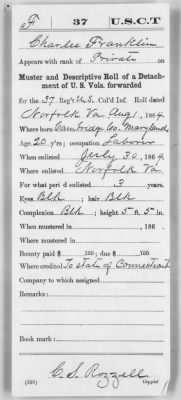 F 37 U.S.C.T
Charles Franklin
Appears with rank of Private on
Muster and Descriptive Roll of a Detach-
ment of U. S. Vols. forwarded
for the 37 Reg't U.S. Col'd Inf. Roll dated
Norfolk Va Aug 1, 1864.
Where born Cambridge Co. Maryland
Age 20 y'rs; occupation Laborer
When enlisted July 30, 1864.
Where enlisted Norfolk Va
For what period enlisted 3 years.
Eyes Blk ; hair Blk
Complexion Blk ; height 5 ft. 5 in.
When mustered in , 186 .
Where mustered in
Bounty paid $ 100 ; due $ 100
Where credited To State of Connecticut
Company to which assigned
Remarks:
Book mark:
C. S. Rozzell
(339) Copyist